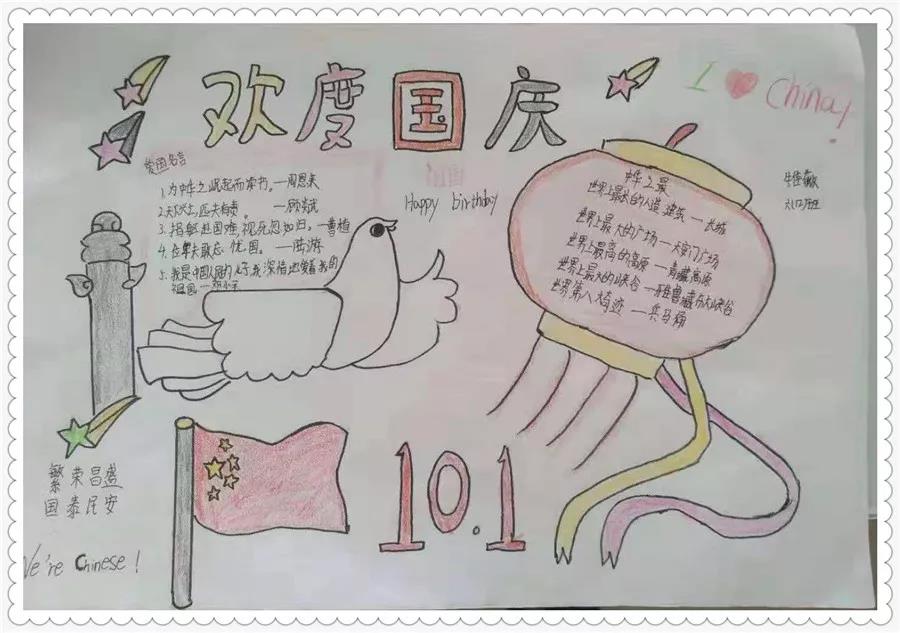 欢度国庆
I ❤ China!
爱国名言
1.为中华之崛起而读书。—周恩来
2.天下兴亡，匹夫有责。 —顾炎武
3.捐躯赴国难，视死忽如归。—曹植
4.位卑未敢忘忧国。 —陆游
5.我是中国人民的儿子，我深情地爱着我的
祖国—邓小平
祖国
Happy birthday
中华之最
世界上最大的人造建筑—长城
世界上最大的广场—天安门广场
世界上最高的高原—青藏高原
世界上最大的峡谷—雅鲁藏布大峡谷
世界第八大奇迹—兵马俑
繁荣昌盛
国泰民安
We're Chinese!
10.1